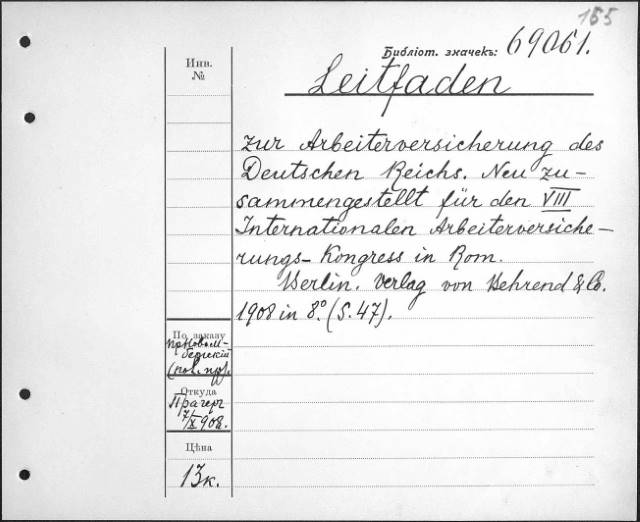 155
Библіот. значекъ: 69061.
Инв. №
Leitfaden
zur Arbeiterversicherung des
Deutschen Reichs. Neu zu-
sammengestellt für den VIII
Internationalen Arbeiterversiche-
rungs-Kongress in Rom.
Berlin. Verlag von Behrend & Co.
1908 in 8.° (S. 47).
По заказу
(пов. пр).
Откуда
Прагеръ
7/X 908.
Цѣна
13 к.